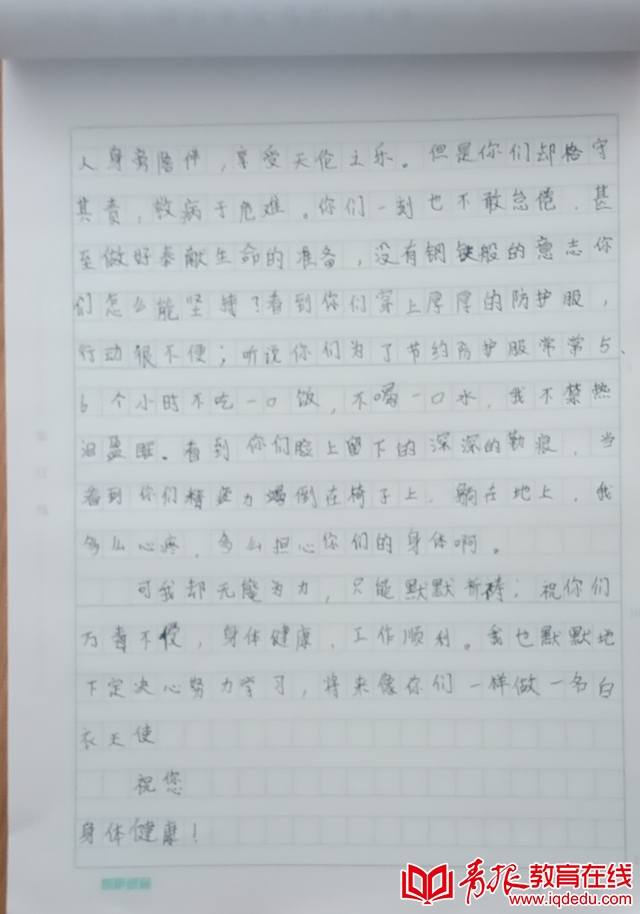 人身旁陪伴，享受天伦之乐。但是你们却恪守
其责，救病于危难。你们一刻也不敢怠倦，甚
至做好奉献生命的准备，没有钢铁般的意志你
们怎么能坚持？看到你们穿上厚厚的防护服，
行动很不便；听说你们为了节约防护服常常5、
6个小时不吃一口饭，不喝一口水，我不禁热
泪盈眶。看到你们脸上留下的深深的勒痕，当
看到你们精疲力竭倒在椅子上，躺在地上，我
多么心疼，多么担心你们的身体啊。
可我却无能为力，只能默默祈祷；祝你们
万毒不侵，身体健康、工作顺利。我也默默地
下定决心努力学习，将来像你们一样做一名白
衣天使
祝您
身体健康！
青报教育在线
www.iqdedu.com